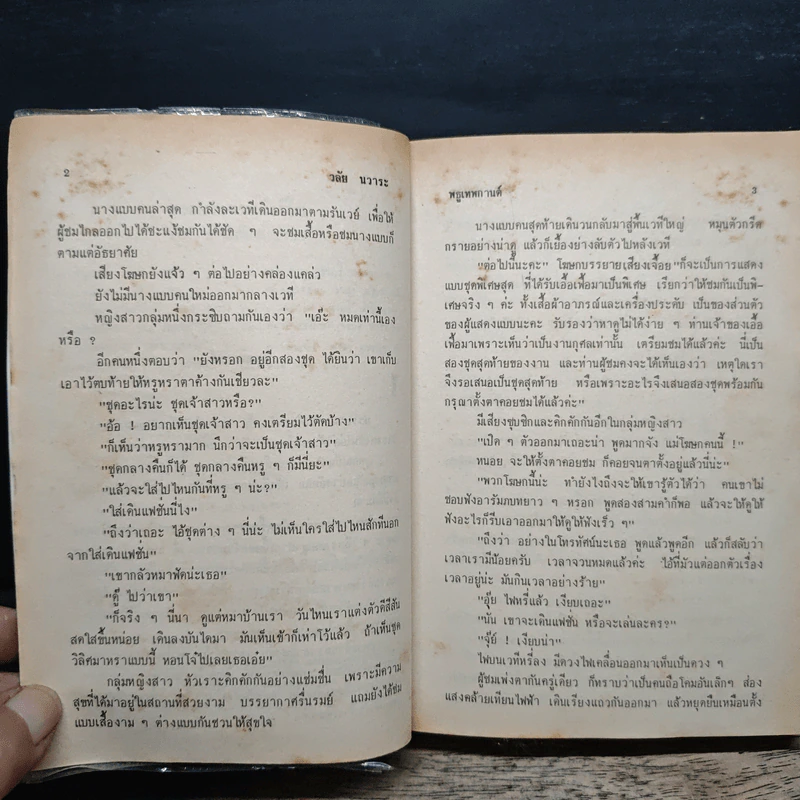 2
วลัย นวาระ
นางแบบคนล่าสุด กำลังละเวทีเดินออกมาตามรันเวย์ เพื่อให้
ผู้ชมไกลออกไปได้ชะแง้ชมกันได้ชัด ๆ จะชมเสื้อหรือชมนางแบบก็
ตามแต่อัธยาศัย
เสียงโฆษกยังแจ้ว ๆ ต่อไปอย่างคล่องแคล่ว
ยังไม่มีนางแบบคนใหม่ออกมากลางเวที
หญิงสาวกลุ่มหนึ่งกระซิบถามกันเองว่า "เอ๊ะ หมดเท่านี้เอง
หรือ ?
อีกคนหนึ่งตอบว่า "ยังหรอก อยู่อีกสองชุด ได้ยินว่า เขาเก็บ
เอาไว้ตบท้ายให้หรูหราตาค้างกันเชียวละ"
"ชุดอะไรน่ะ ชุดเจ้าสาวหรือ?"
"อ้อ ! อยากเห็นชุดเจ้าสาว คงเตรียมไว้ตัดบ้าง"
"ก็เห็นว่าหรูหรามาก นึกว่าจะเป็นชุดเจ้าสาว"
"ชุดกลางคืนก็ได้ ชุดกลางคืนหรู ๆ ก็มีนี่ยะ"
"แล้วจะใส่ไปไหนกันที่หรู ๆ น่ะ?"
"ใส่เดินแฟชั่นนี่ไง"
"ถึงว่าเถอะ ไอ้ชุดต่าง ๆ นี่น่ะ ไม่เห็นใครใส่ไปไหนสักทีนอก
จากใส่เดินแฟชั่น"
"เขากลัวหมาฟัดน่ะเธอ"
"ดู๊ ไปว่าเขา"
"ก็จริง ๆ นี่นา ดูแต่หมาบ้านเรา วันไหนเราแต่งตัวสีสัน
สดใสขึ้นหน่อย เดินลงบันไดมา มันเห็นเข้าก็เห่าโว้แล้ว ถ้าเห็นชุด
วิลิศมาหราแบบนี้ หอนโจ๋ไปเลยเธอเอ๋ย"
กลุ่มหญิงสาว หัวเราะคิกคักกันอย่างแช่มชื่น เพราะมีความ
สุขที่ได้มาอยู่ในสถานที่สวยงาม บรรยากาศรื่นรมย์ แถมยังได้ชม
แบบเสื้องาม ๆ ต่างแบบกันชวนให้สุขใจ
พธูเทพกานต์
3
นางแบบคนสุดท้ายเดินวนกลับมาสู่พื้นเวทีใหญ่ หมุนตัวกรีด
กรายอย่างน่าดู แล้วก็เยื้องย่างลับตัวไปหลังเวที
"ต่อไปนี้นะคะ" โฆษกบรรยายเสียงเจื้อย "ก็จะเป็นการแสดง
แบบชุดพิเศษสุด ที่ได้รับเอื้อเฟื้อมาเป็นพิเศษ เรียกว่าให้ชมกันเป็นพิ-
เศษจริง ๆ ค่ะ ทั้งเสื้อผ้าอาภรณ์และเครื่องประดับ เป็นของส่วนตัว
ของผู้แสดงแบบนะคะ รับรองว่าหาดูไม่ได้ง่าย ๆ ท่านเจ้าของเอื้อ
เฟื้อมาเพราะเห็นว่าเป็นงานกุศลเท่านั้น เตรียมชมได้แล้วค่ะ นี่เป็น
สองชุดสุดท้ายของงาน และท่านผู้ชมคงจะได้เห็นเองว่า เหตุใดเรา
จึงรอเสนอเป็นชุดสุดท้าย หรือเพราะอะไรจึงเสนอสองชุดพร้อมกัน
กรุณาตั้งตาคอยชมได้แล้วค่ะ"
มีเสียงซุบซิกและคิกคักกันอีกในกลุ่มหญิงสาว
"เปิด ๆ ตัวออกมาเถอะน่า พูดมากจัง แม่โฆษกคนนี้ !"
หนอย จะให้ตั้งตาคอยชม ก็คอยจนตาตั้งอยู่แล้วนี่น่ะ"
"พวกโฆษกนี้น่ะ ทำยังไงถึงจะให้เขารู้ตัวได้ว่า คนเขาไม่
ชอบฟังอารัมภบทยาว ๆ หรอก พูดสองสามคำก็พอ แล้วจะให้ดูให้
ฟังอะไรก็รีบเอาออกมาให้ดูให้ฟังเร็ว ๆ"
"ถึงว่า อย่างในโทรทัศน์นะเธอ พูดแล้วพูดอีก แล้วก็สลับว่า
เวลาเรามีน้อยครับ เวลาจวนหมดแล้วค่ะ ไอ้ที่มัวแต่ออกตัวเรื่อง
เวลาอยู่น่ะ มันกินเวลาอย่างร้าย"
"อุ๊ย ไฟหรี่แล้ว เงียบเถอะ"
"นั่น เขาจะเดินแฟชั่น หรือจะเล่นละคร?"
"จุ๊ย์ ! เงียบน่า"
ไฟบนเวทีหรี่ลง มีดวงไฟเคลื่อนออกมาเห็นเป็นดวง ๆ
ผู้ชมเพ่งตากันครู่เดียว ก็ทราบว่าเป็นคนถือโคมอันเล็กๆ ส่อง
แสงคล้ายเทียนไฟฟ้า เดินเรียงแถวกันออกมา แล้วหยุดยืบเหมือนตั้ง